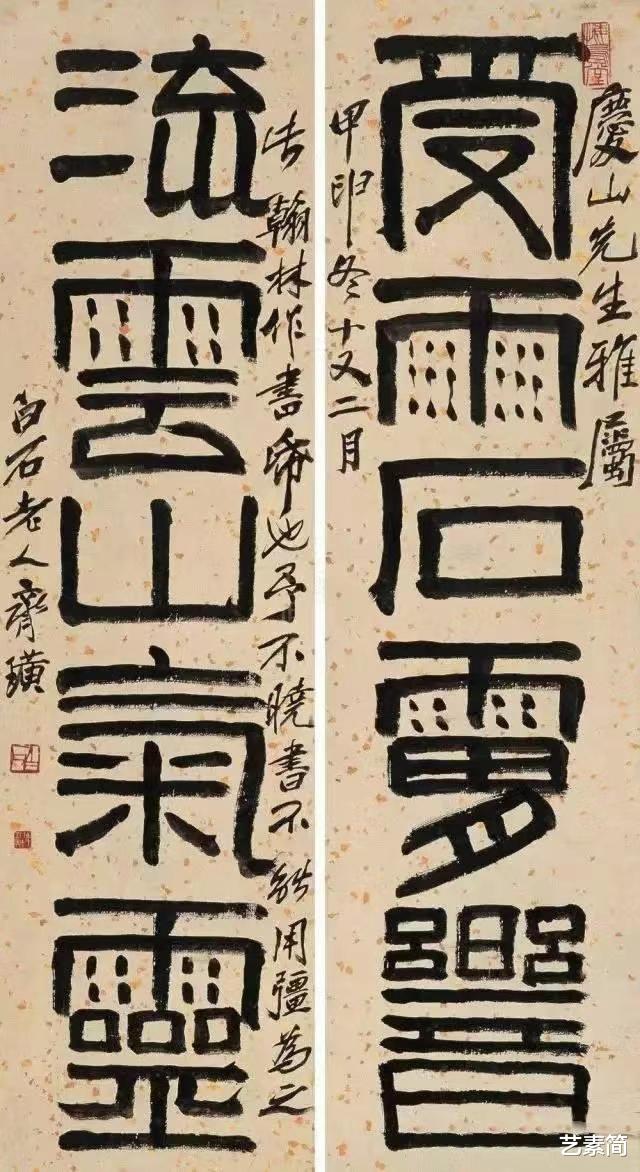 慶山先生雅屬
受雨石
甲申冬十又二月
翰林作書也予不曉書不能用彊為之
流雲山氣靈
白石老人齊璜
艺素简